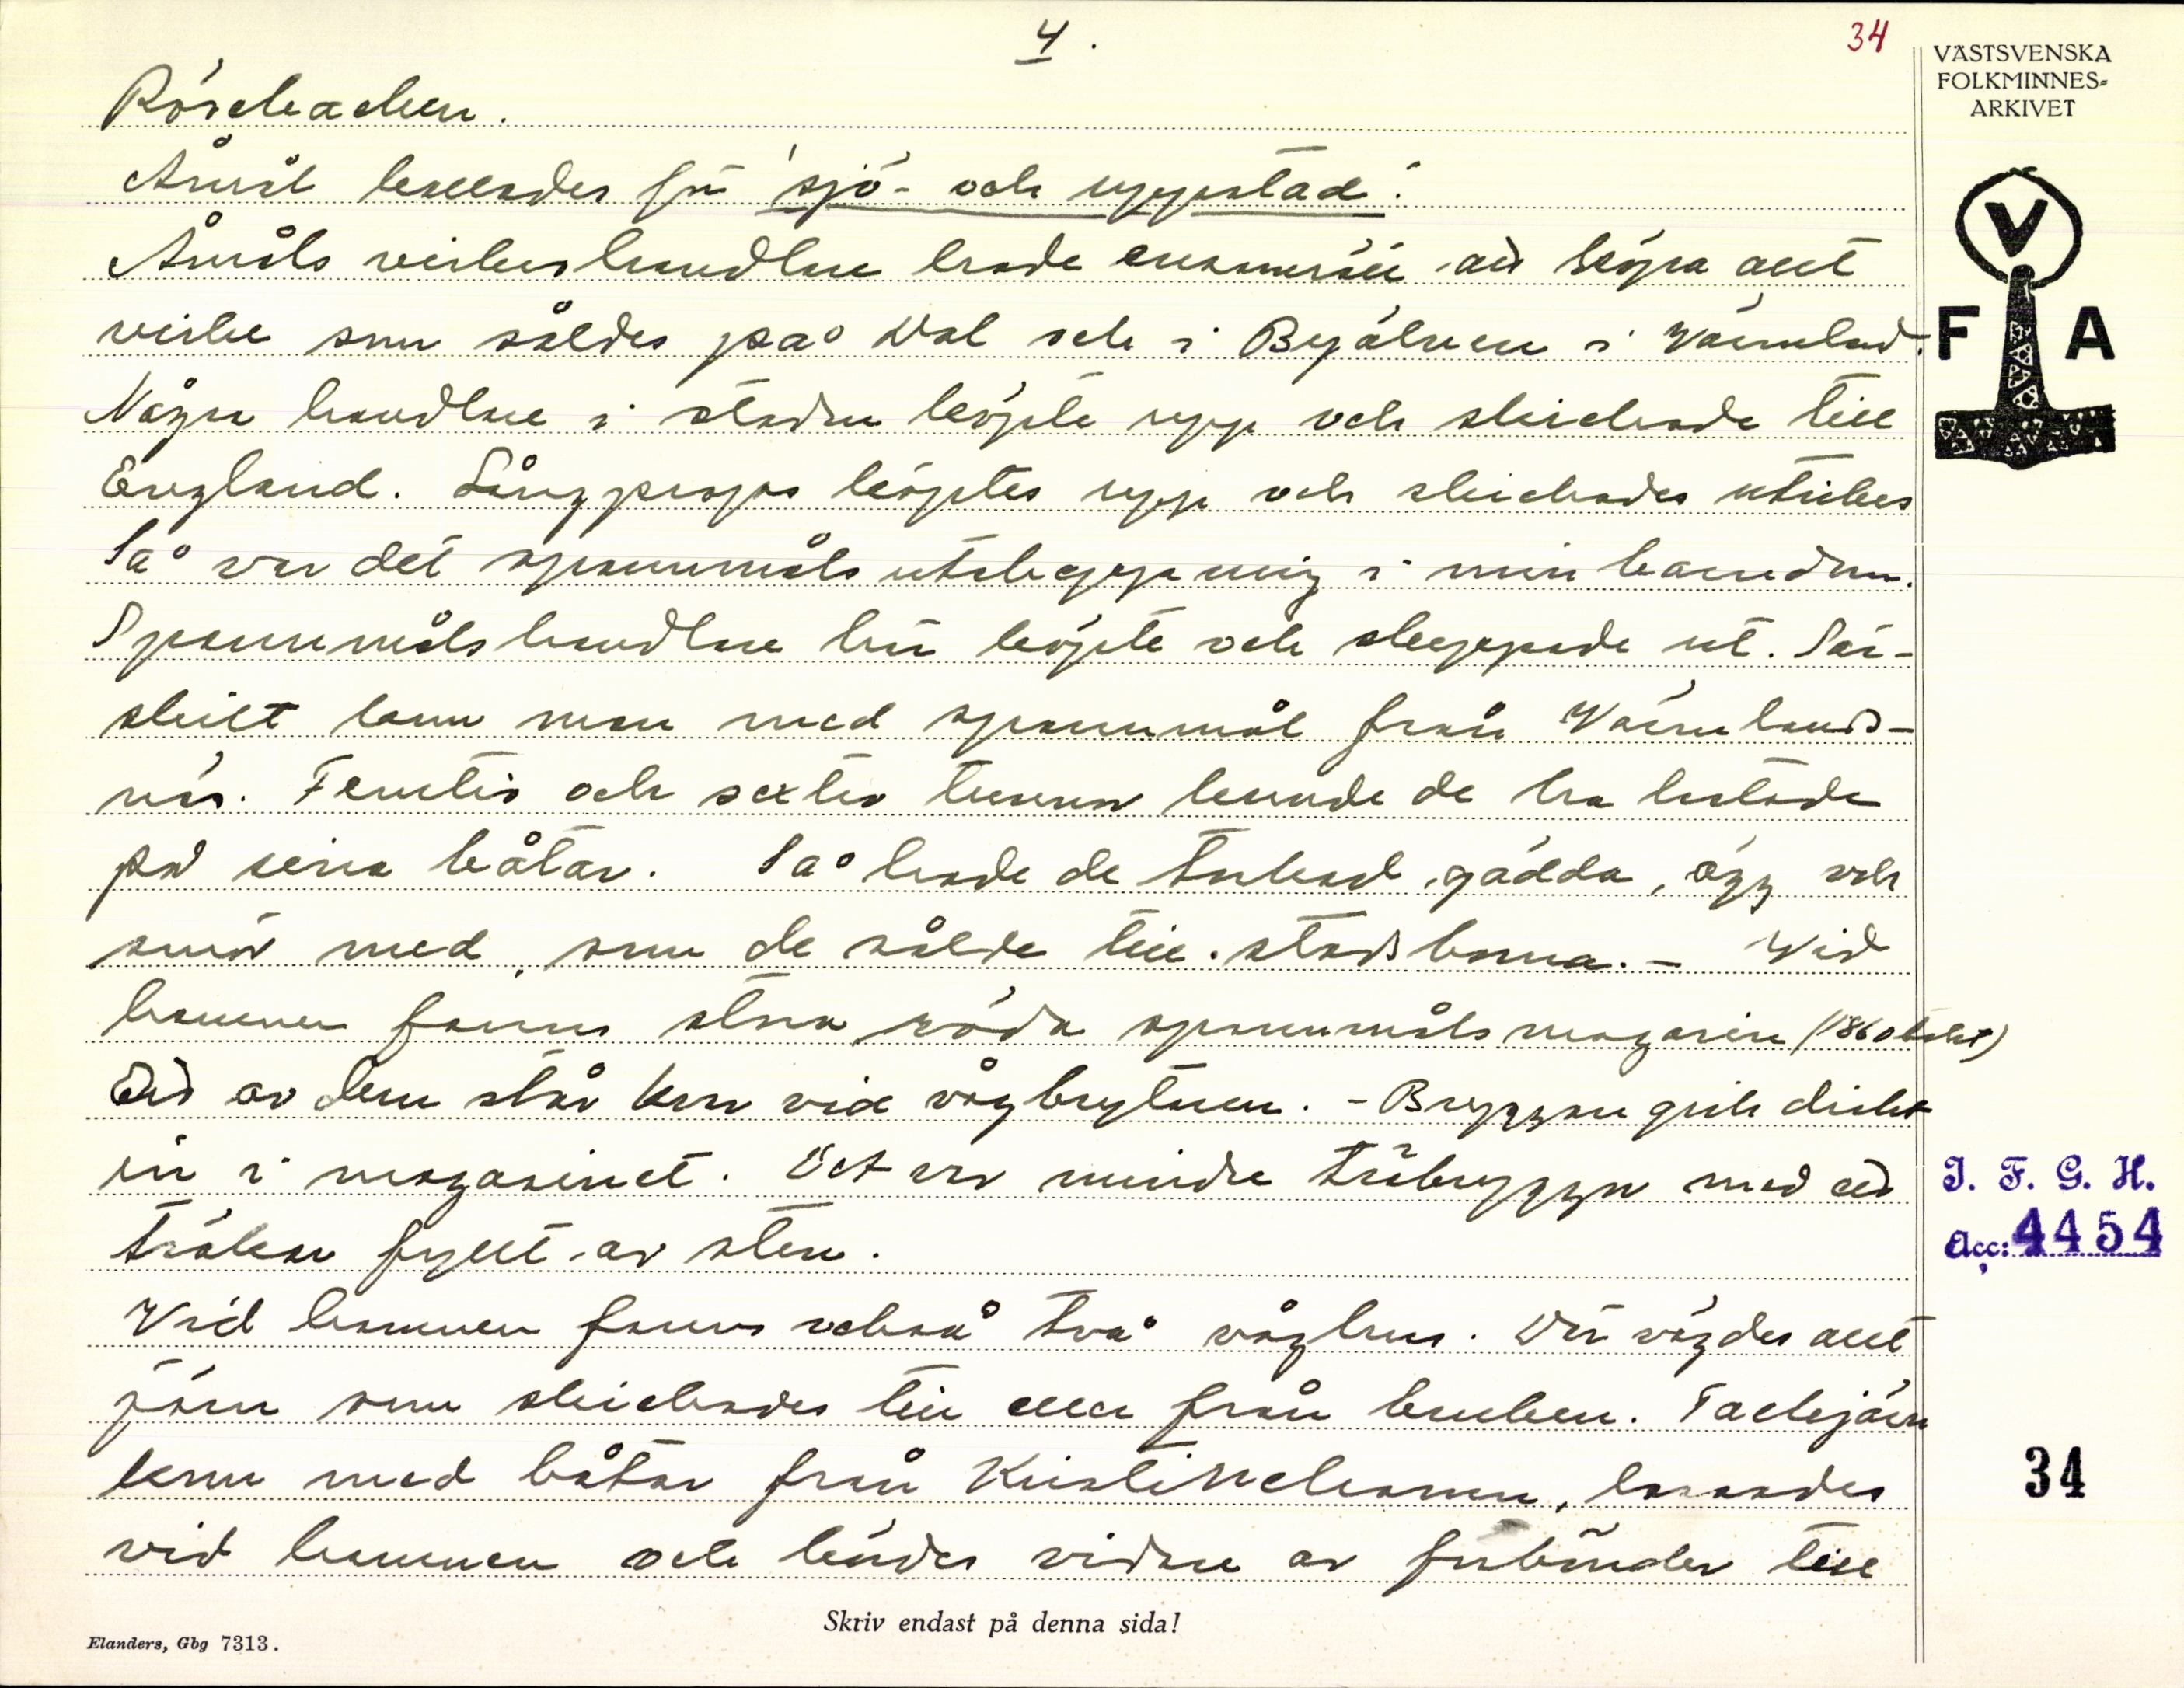 4.
34
VÄSTSVENSKA
FOLKMINNES-
ARKIVET
Åmål kallades för 'sjö- och uppstad'.
Åmåls virkeshandlare hade ensamrätt att köpa allt
virke som såldes på Dal och i Byälven i Värmland.
Några handlare i staden köpte upp och skickade till
England. Långprops köptes upp och skickades utrikes
Så var det spannmålsutskeppning i min barndom.
Spannmålshandlare här köpte och skeppade ut. Sär-
skilt kom man med spannmål från Värmlands-
näs. Femtio och sextio tunnor kunde de ha lastade
på sina båtar. Så hade de torkad gädda, ägg och
smör med, som de sålde till stadsborna. - Vid
hamnen fanns stora röda spannmålsmagasin (1860 talet)
Ett av dem står kvar vid vågbrytaren. - Bryggan gick direkt
in i magasinet. Det var mindre träbryggor med ett
trälkar fyllt av sten.
Vid hamnen fanns också två våghus. Där vägdes allt
järn som skickades till eller från bruken. Tackjärn
kom med båtar från Kristinehamn, lossades
vid hamnen och kördes vidare av forbönder till
V
F A
I. F. G. H.
Acc: 4454
34
Skriv endast på denna sida!
Elanders, Gbg 7313.